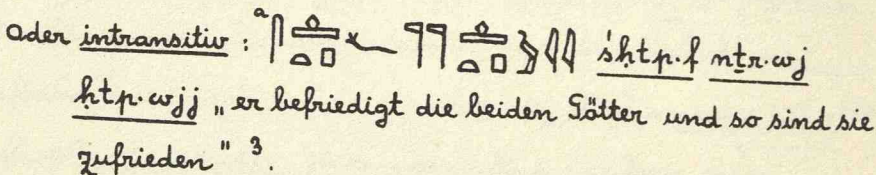 Oder intransitiv : ᵃ𓋴𓊵𓏏𓊪𓆑𓊹𓊹𓊵𓏏𓊪𓅱𓇋𓇋 śḥtp·f nṯr·wj
ḥtp·wjj „er befriedigt die beiden Götter und so sind sie
zufrieden" ³.